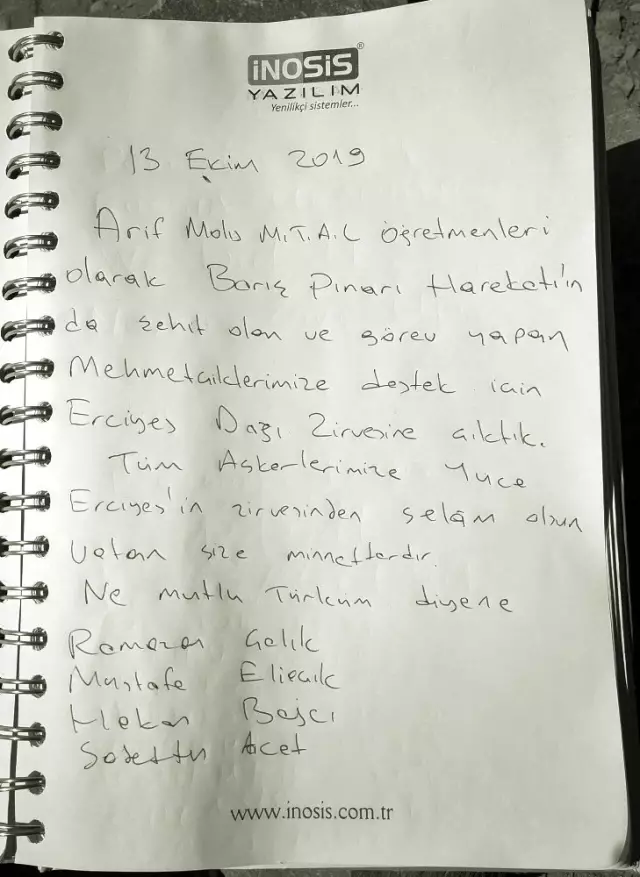 iNOSiS®
YAZILIM
Yenilikçi sistemler...
13 Ekim 2019
Arif Molu M.T.A.L öğretmenleri
olarak Barış Pınarı Harekatı'in
da şehit olan ve görev yapan
Mehmetciklerimize destek için
Erciyes Dağı Zirvesine çıktık.
Tüm Askerlerimize Yuce
Erciyes'in zirvesinden selâm olsun
Vatan size minnettardır.
Ne mutlu Türkum diyene
Ramazan Çelik
Mustafa Eliaçık
Hakan Bağcı
Acet
www.inosis.com.tr